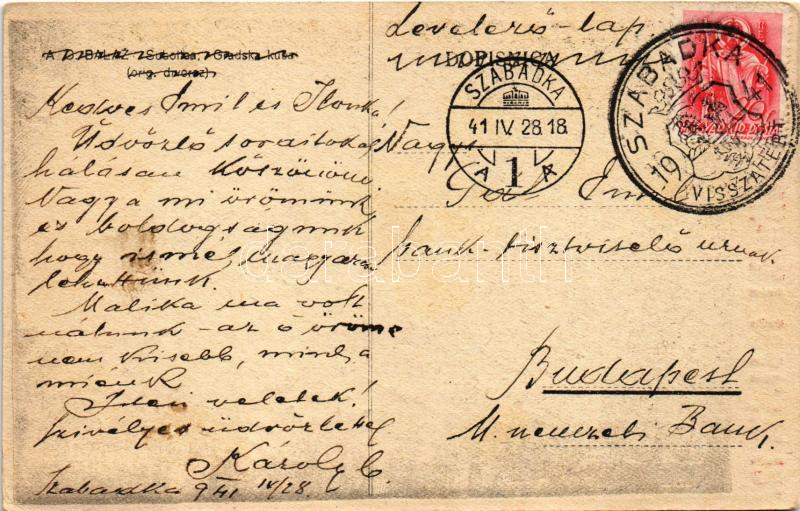 A. D. BALAŽ, Subotica, Gradska kuća
Levelező-lap
DOPISNICA
SZABADKA
41 IV. 28. 18
A 1 A
SZABADKA
VISSZATÉRT
1941
Kedves Emil és Ilonka!
Üdvözlő soraitokat
hálásan köszönöm
Nagy a mi örömünk
és boldogságunk
hogy ismét magyarok
lehettünk.
Malika ma volt
nálunk - az ő öröme
nem kisebb, mint a
miénk
Isten veletek!
szívélyes üdvözlettel
Károly
Szabadka 941 IV/28.
Nagys.
Emil
bank tisztviselő urnak
Budapest
M. nemzeti Bank.
darabanth